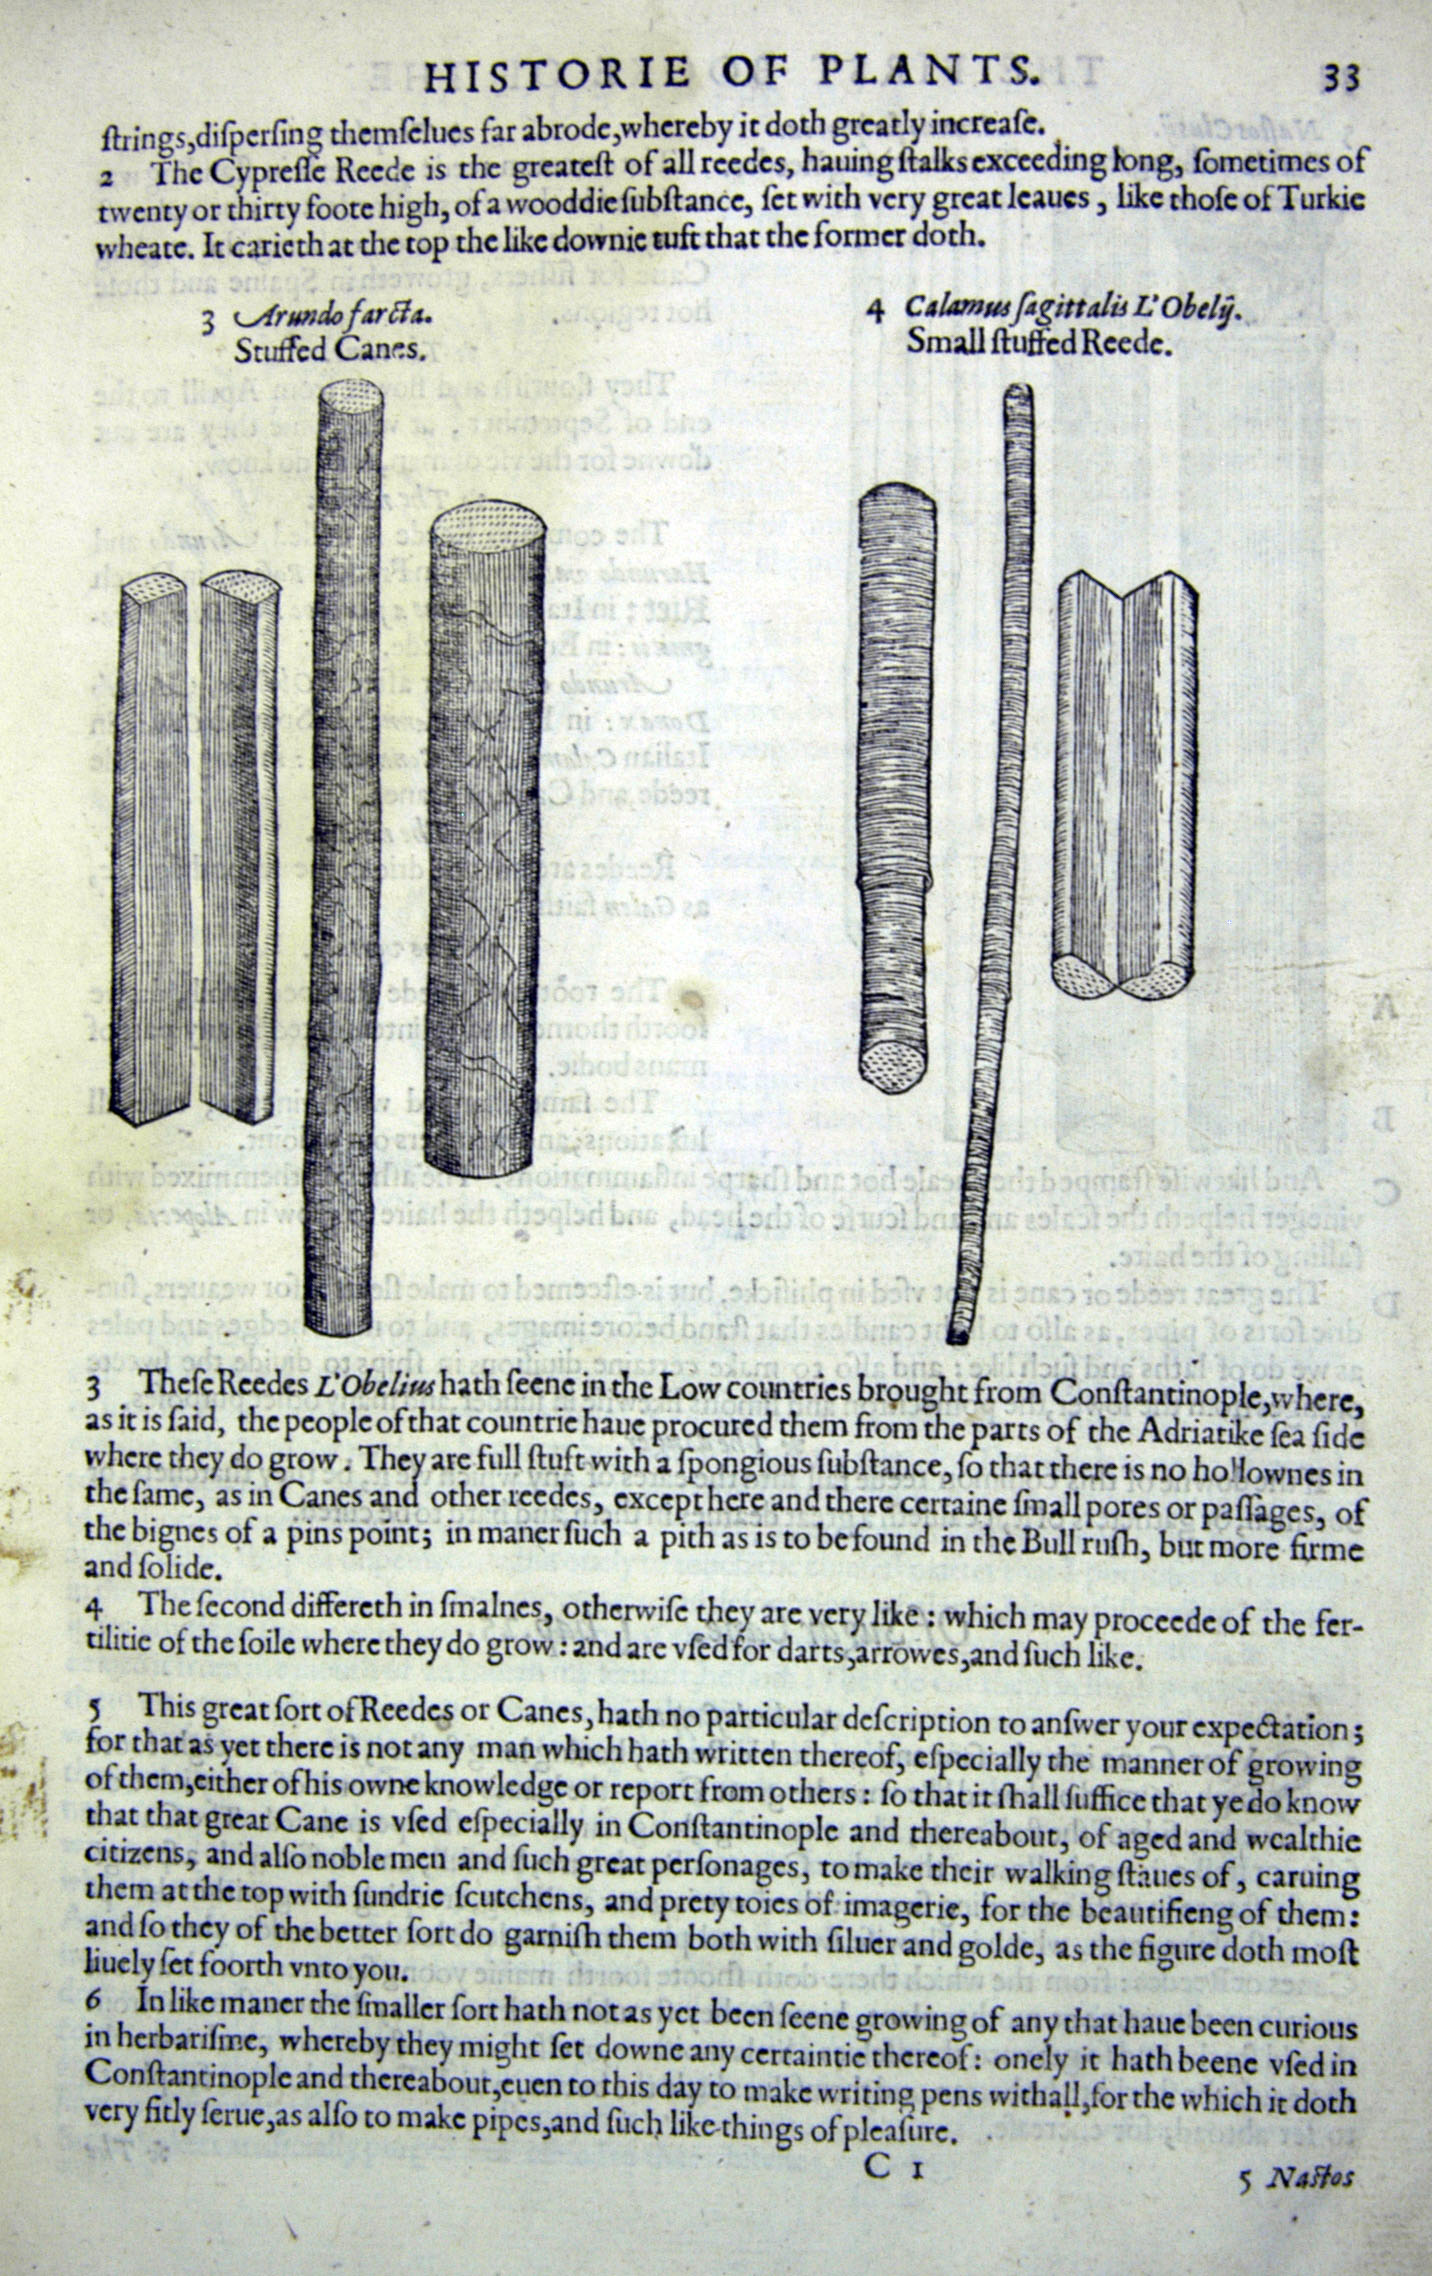 HISTORIE OF PLANTS. 33
ſtrings,diſperſing themſelues far abrode,whereby it doth greatly increaſe.
2 The Cypreſſe Reede is the greateſt of all reedes, hauing ſtalks exceeding long, ſometimes of
twenty or thirty foote high, of a wooddie ſubſtance, ſet with very great leaues , like thoſe of Turkie
wheate. It carieth at the top the like downie tuft that the former doth.
3 Arundo farcta.
Stuffed Canes.
4 Calamus ſagittalis L'Obelij.
Small ſtuffed Reede.
3 Theſe Reedes L'Obelius hath ſeene in the Low countries brought from Conſtantinople,where,
as it is ſaid, the people of that countrie haue procured them from the parts of the Adriatike ſea ſide
where they do grow. They are full ſtuft with a ſpongious ſubſtance, ſo that there is no hollownes in
the ſame, as in Canes and other reedes, except here and there certaine ſmall pores or paſſages, of
the bignes of a pins point; in maner ſuch a pith as is to be found in the Bull ruſh, but more firme
and ſolide.
4 The ſecond differeth in ſmalnes, otherwiſe they are very like : which may proceede of the fer-
tilitie of the ſoile where they do grow : and are vſed for darts,arrowes,and ſuch like.
5 This great ſort of Reedes or Canes, hath no particular deſcription to anſwer your expectation;
for that as yet there is not any man which hath written thereof, eſpecially the manner of growing
of them,either of his owne knowledge or report from others : ſo that it ſhall ſuffice that ye do know
that that great Cane is vſed eſpecially in Conſtantinople and thereabout, of aged and wealthie
citizens, and alſo noble men and ſuch great perſonages, to make their walking ſtaues of , caruing
them at the top with ſundrie ſcutchens, and prety toies of imagerie, for the beautifieng of them:
and ſo they of the better ſort do garniſh them both with ſiluer and golde, as the figure doth moſt
liuely ſet foorth vnto you.
6 In like maner the ſmaller ſort hath not as yet been ſeene growing of any that haue been curious
in herbariſme, whereby they might ſet downe any certaintie thereof: onely it hath beene vſed in
Conſtantinople and thereabout,euen to this day to make writing pens withall,for the which it doth
very fitly ſerue,as alſo to make pipes,and ſuch like things of pleaſure.
C 1
5 Naſtos